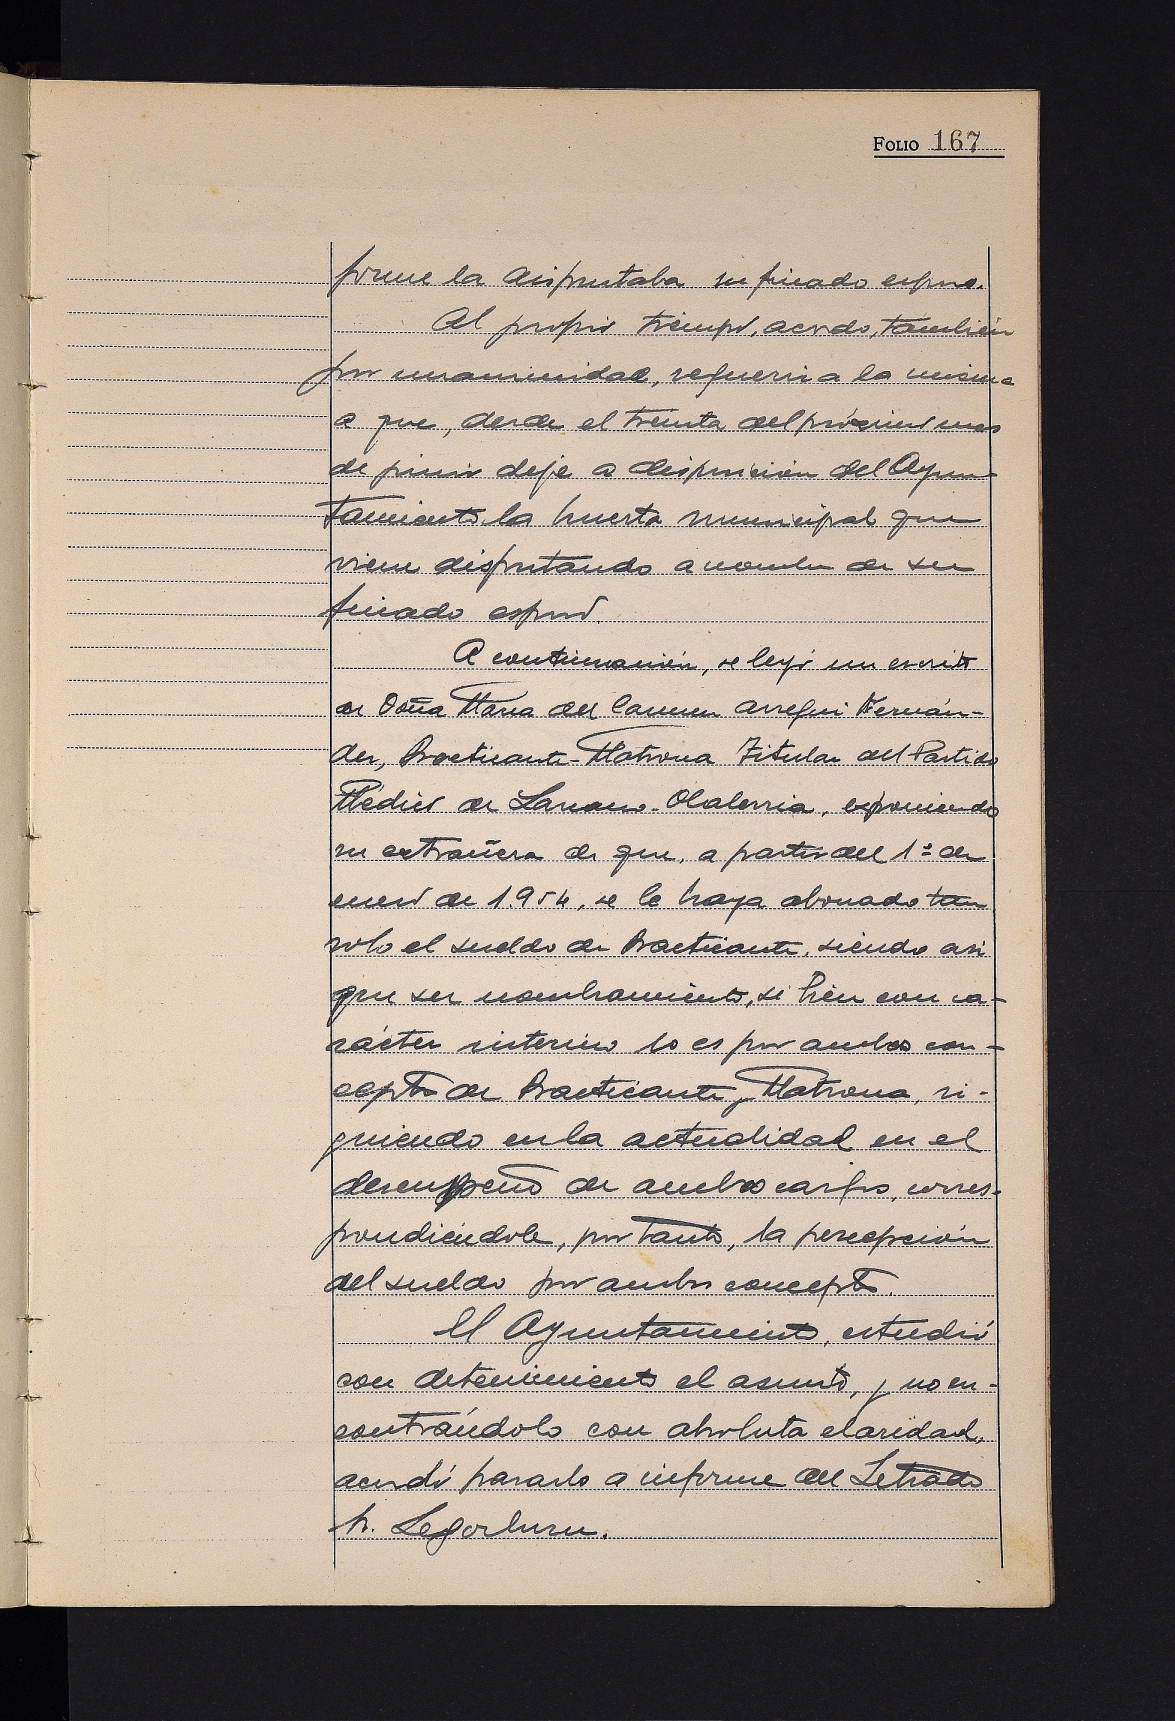 FOLIO 167
forme la disfrutaba su finado esposo.
Al propio tiempo, acordó, también
por unanimidad, requerir a la misma
a que, desde el treinta del próximo mes
de junio deje a disposición del Ayun-
tamiento la huerta municipal que
viene disfrutando a nombre de su
finado esposo.
A continuación, se leyó un escrito
de Doña María del Carmen Arregui Fernán-
dez, Practicante-Matrona Titular del Partido
Médico de Lazcano-Olaberria, exponiendo
su extrañeza de que, a partir del 1º de
enero de 1.954, se le haya abonado tan
solo el sueldo de Practicante, siendo así
que su nombramiento, si bien con ca-
rácter interino lo es por ambos con-
ceptos de Practicante y Matrona, si-
guiendo en la actualidad en el
desempeño de ambos cargos, corres-
pondiéndole, por tanto, la percepción
del sueldo por ambos conceptos.
El Ayuntamiento, estudió
con detenimiento el asunto, y no en-
contrándolo con absoluta claridad,
acordó pasarlo a informe del Letrado
Sr. Legorburu.